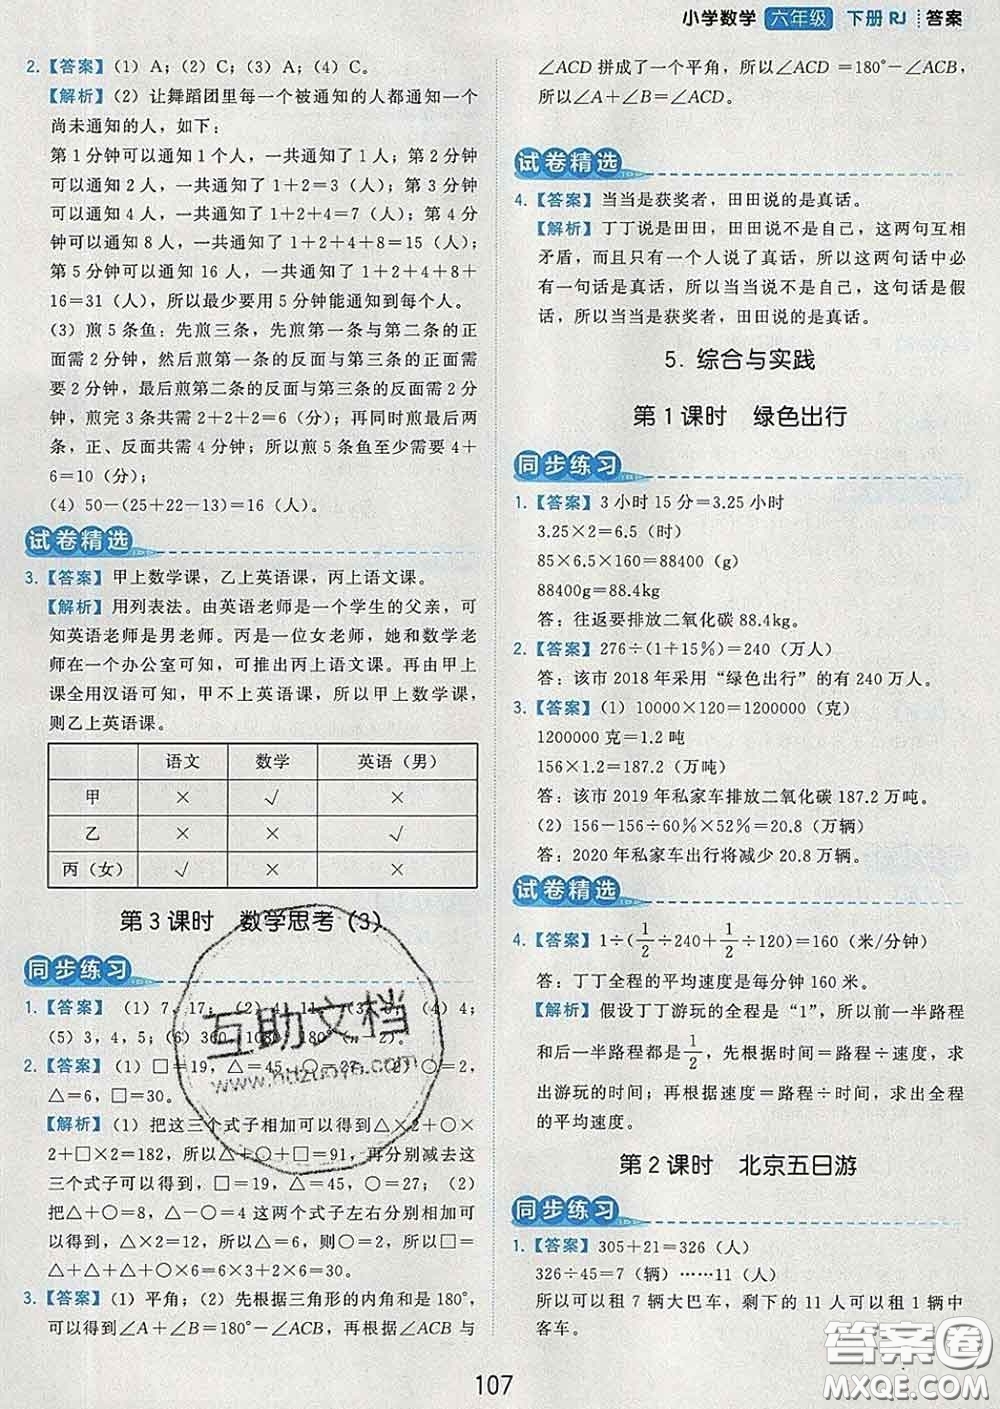 小学数学 六年级 下册 RJ 答案
2.【答案】(1) A；(2) C；(3) A；(4) C。
【解析】(2) 让舞蹈团里每一个被通知的人都通知一个
尚未通知的人，如下：
第 1 分钟可以通知 1 个人，一共通知了 1 人；第 2 分钟
可以通知 2 人，一共通知了 1＋2＝3（人）；第 3 分钟
可以通知 4 人，一共通知了 1＋2＋4＝7（人）；第 4 分
钟可以通知 8 人，一共通知了 1＋2＋4＋8＝15（人）；
第 5 分钟可以通知 16 人，一共通知了 1＋2＋4＋8＋
16＝31（人），所以最少要用 5 分钟能通知到每个人。
(3) 煎 5 条鱼：先煎三条，先煎第一条与第二条的正
面需 2 分钟，然后煎第一条的反面与第三条的正面需
要 2 分钟，最后煎第二条的反面与第三条的反面需 2 分
钟，煎完 3 条共需 2＋2＋2＝6（分）；再同时煎剩下的
两条，正、反面共需 4 分钟；所以煎 5 条鱼至少需要 4＋
6＝10（分）；
(4) 50－(25＋22－13)＝16（人）。
试卷精选
3.【答案】甲上数学课，乙上英语课，丙上语文课。
【解析】用列表法。由英语老师是一个学生的父亲，可
知英语老师是男老师。丙是一位女老师，她和数学老
师在一个办公室可知，可推出丙上语文课。再由甲上
课全用汉语可知，甲不上英语课，所以甲上数学课，
则乙上英语课。
语文 数学 英语（男）
甲 × √ ×
乙 × × √
丙（女） √ × ×
第 3 课时 数学思考（3）
同步练习
1.【答案】(1) 7，17；(2) 4，11；(3) 6；(4) 4；
(5) 3，4，5；(6) 360，1080，180°（n－2）。
2.【答案】(1) □＝19，△＝45，○＝27；(2) ○＝2，
△＝6，□＝30。
【解析】(1) 把这三个式子相加可以得到：△×2＋○×
2＋□×2＝182，所以△＋○＋□＝91，再分别减去这
三个式子可以得到，□＝19，△＝45，○＝27；(2)
把△＋○＝8，△×○＝12 这两个式子左右分别相加可
以得到，△×2＝12，所以△＝6，○＝2，所以□＝
△＋△＋△＋○×6＝6×3＋2×6＝30。
3.【答案】(1) 平角；(2) 先根据三角形的内角和是 180°，
可以得到∠A＋∠B＝180°－∠ACB，再根据∠ACB 与
∠ACD 拼成了一个平角，所以∠ACD＝180°－∠ACB，
所以∠A＋∠B＝∠ACD。
试卷精选
4.【答案】当当是获奖者，田田说的是真话。
【解析】丁丁说是田田，田田说不是自己，这两句互相
矛盾，而且只有一个人说了真话，所以这两句话中必
有一句话是真话，所以当当说不是自己，这句话是假
话，所以当当是获奖者，田田说的是真话。
5. 综合与实践
第 1 课时 绿色出行
同步练习
1.【答案】3 小时 15 分＝3.25 小时
3.25×2＝6.5（时）
85×6.5×160＝88400（g）
88400g＝88.4kg
答：往返要排放二氧化碳 88.4kg。
2.【答案】276÷(1＋15%)＝240（万人）
答：该市 2018 年采用“绿色出行”的有 240 万人。
3.【答案】(1) 10000×120＝1200000（克）
1200000 克＝1.2 吨
156×1.2＝187.2（万吨）
答：该市 2019 年私家车排放二氧化碳 187.2 万吨。
(2) 156－156÷60%×52%＝20.8（万辆）
答：2020 年私家车出行将减少 20.8 万辆。
试卷精选
4.【答案】1÷(1/2÷240＋1/2÷120)＝160（米/分钟）
答：丁丁全程的平均速度是每分钟 160 米。
【解析】假设丁丁游玩的全程是“1”，所以前一半路程
和后一半路程都是1/2，先根据时间＝路程÷速度，求
出游玩的时间；再根据速度＝路程÷时间，求出全程
的平均速度。
第 2 课时 北京五日游
同步练习
1.【答案】305＋21＝326（人）
326÷45＝7（辆）……11（人）
所以可以租 7 辆大巴车，剩下的 11 人可以租 1 辆中
客车。
107
互助文档
www.huzuoye.com
答案圈
MXQE.COM